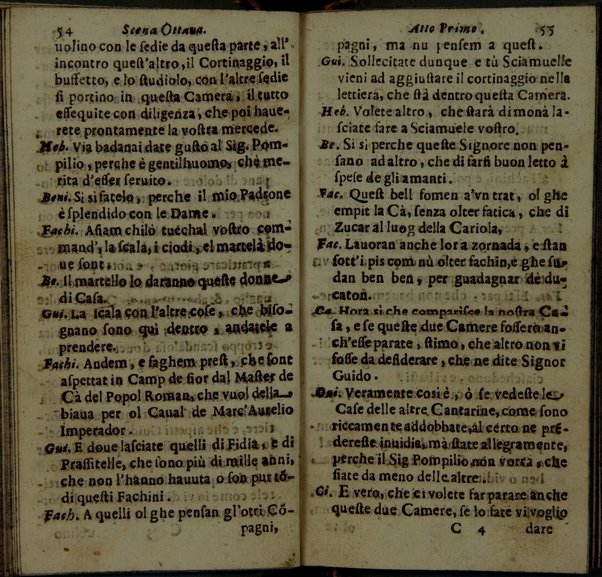 54 Scena Ottaua.
uolino con le sedie da questa parte, all'
incontro quest'altro, il Cortinaggio, il
buffetto, e lo studiolo, con l'altre sedie
si portino in questa Camera, il tutto
essequite con diligenza, che poi haue-
rete prontamente la vostra mercede.
Heb. Via badanai date gusto al Sig. Pom-
pilio, perche è gentilhuomo, che me-
rita d'esser seruito.
Beni. Si si fatelo, perche il mio Padrone
è splendido con le Dame.
Fachi. Asiam chilò tucchal vostro com-
mand', la scala, i ciodi, el martelà do-
ue sont.
Be. Il martello lo daranno queste donne
di Casa.
Gui. La scala con l'altre cose, che biso-
gnano sono qui dentro, andatele a
prendere.
Fachi. Andem, e faghem prest, che sont
aspettat in Camp de fior dal Master de
Cà del Popol Roman, che vuol della
biaua per ol Caual de Marc'Aurelio
Imperador.
Gui. E doue lasciate quelli di Fidia, e di
Prassitelle, che sono più di mille anni,
che non l'hanno hauuta o son put tō-
di questi Fachini.
Fach. A quelli ol ghe pensan gl'otri Cō-
pagni,
Atto Primo. 55
pagni, ma nu pensem a quest.
Gui. Sollecitate dunque e tù Sciamuelle
vieni ad aggiustare il cortinaggio nella
lettiera, che stà dentro questa Camera.
Heb. Volete altro, che starà di monà la-
sciate fare a Sciamuele vostro.
Be. Si si perche queste Signore non pen-
sano ad altro, che di farsi buon letto à
spese de gli amanti.
Fac. Quest bell fomen a'vn trat, ol ghe
empit la Cà, senza olter fatica, che di
Zucar al luog della Cariola,
Fac. Lauoran anche lor à zornada, e stan
sott'i pis com nù olter fachin, è ghe su-
dan ben ben, per guadagnar de du-
caton.
Ca. Hora si che comparisce la nostra Ca-
sa, e se queste due Camere fossero an-
ch'esse parate, stimo, che altro non vi
fosse da desiderare, che ne dite Signor
Guido.
Gui. Veramente così è, ò se vedeste le
Case delle altre Cantarine, come sono
riccamente addobbate, al certo ne prē-
dereste inuidia, mà state allegramente,
perche il Sig Pompilio non vorrà, che
siate da meno delle altre.
Ci. E vero, che ci volete far parare anche
queste due Camere, se lo fate vi voglio
C 4 dare